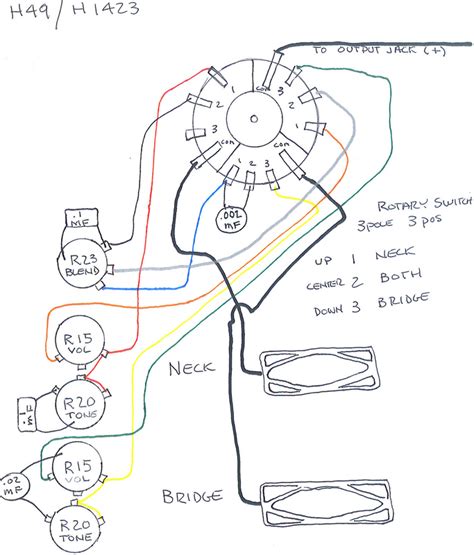 H49/H1423
TO OUTPUT JACK (+)
COM
1
2
3
1
2
3
COM
1
2
3
COM
.002
MF
ROTARY SWITCH
3POLE 3 POS
UP 1 NECK
CENTER 2 BOTH
DOWN 3 BRIDGE
.1
MF
R23
BLEND
R15
VOL
NECK
R20
TONE
.1
MF
R15
VOL
.02
MF
BRIDGE
R20
TONE